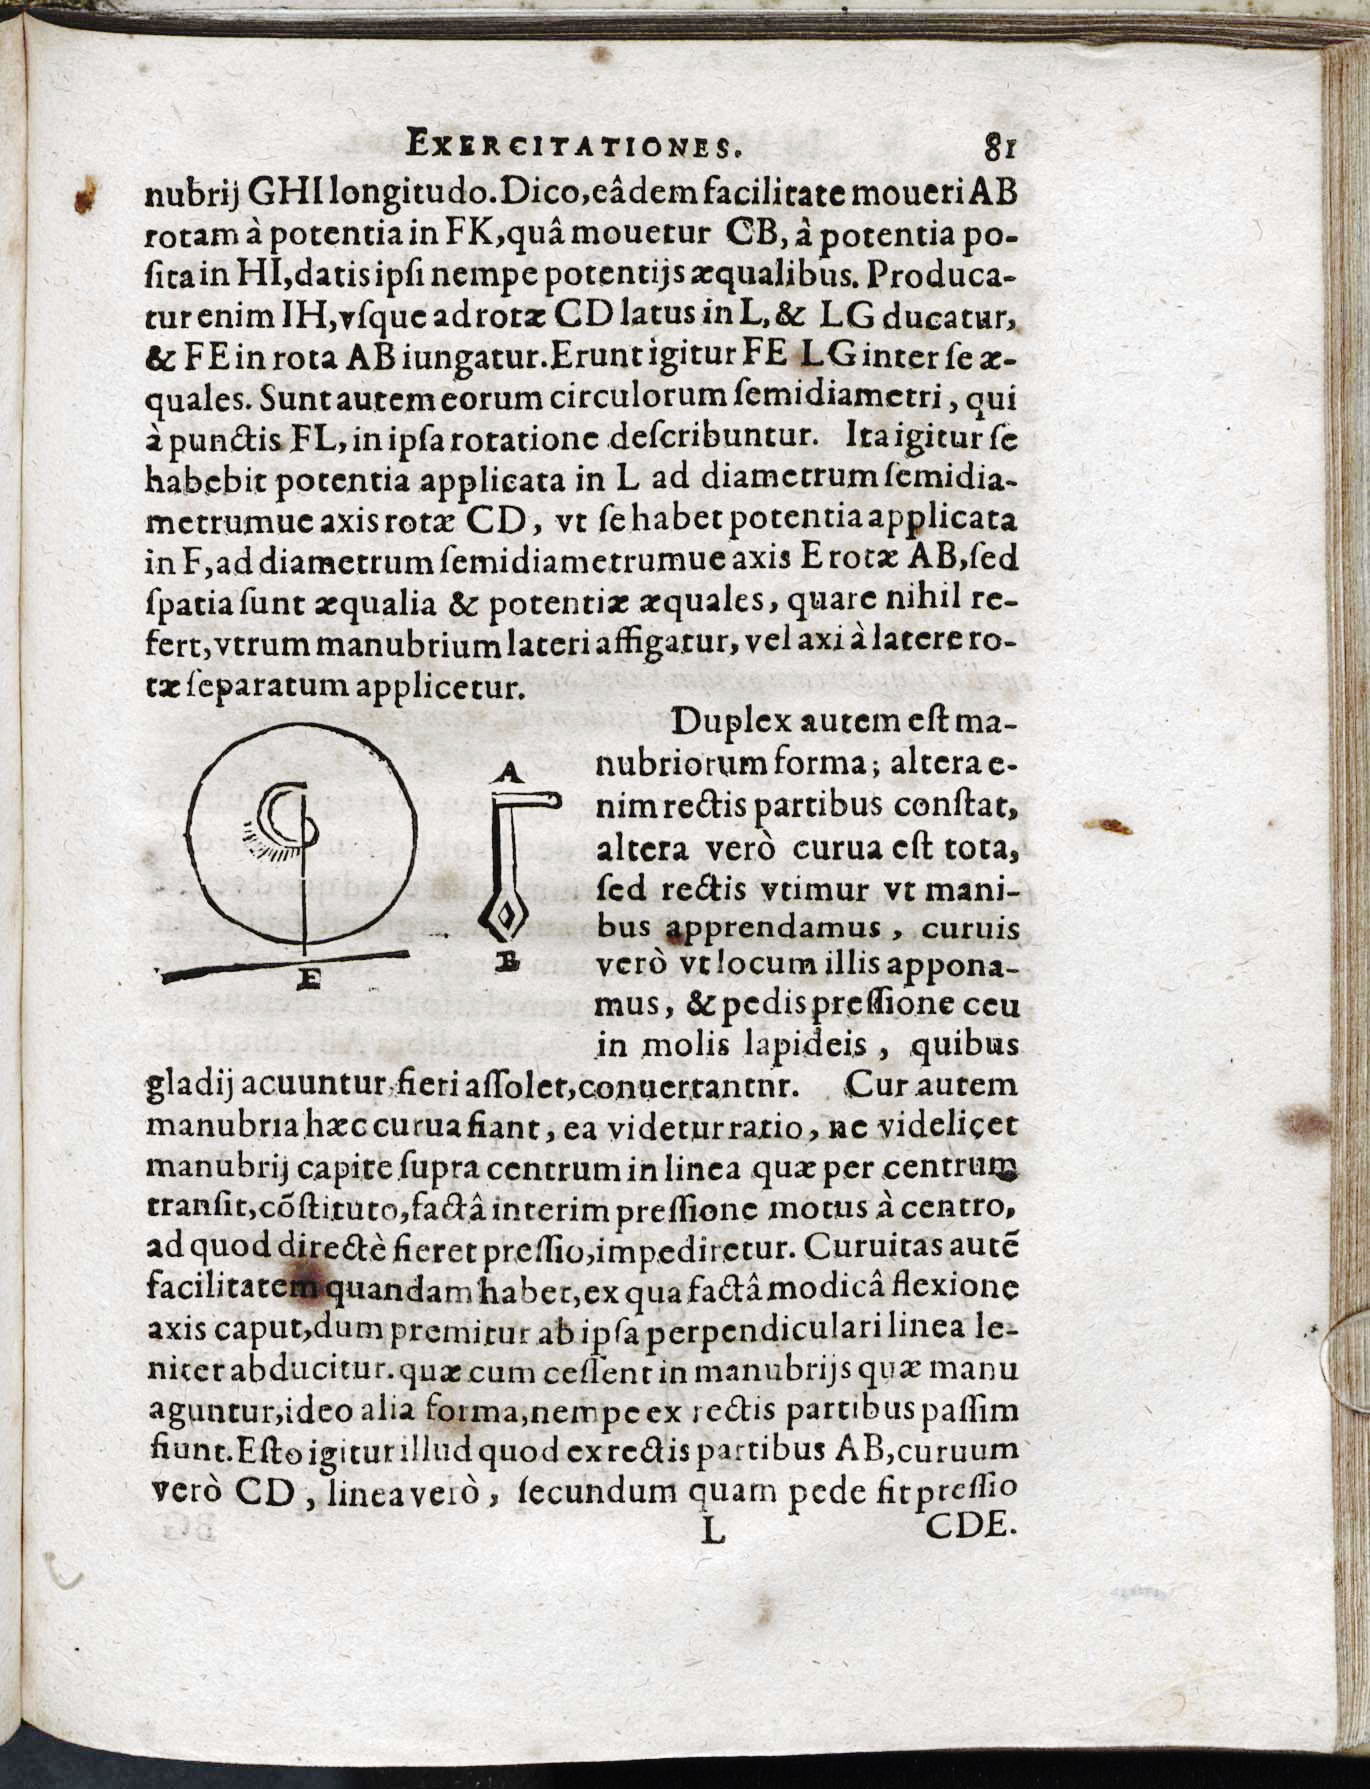 EXERCITATIONES. 81
nubrij GHI longitudo. Dico, eâdem facilitate moueri AB
rotam à potentia in FK, quâ mouetur CB, à potentia po-
ſita in HI, datis ipſi nempe potentijs æqualibus. Produca-
tur enim IH, vſque ad rotæ CD latus in L, & LG ducatur,
& FE in rota AB iungatur. Erunt igitur FE LG inter ſe æ-
quales. Sunt autem eorum circulorum ſemidiametri, qui
à punctis FL, in ipſa rotatione deſcribuntur. Ita igitur ſe
habebit potentia applicata in L ad diametrum ſemidia-
metrumue axis rotæ CD, vt ſe habet potentia applicata
in F, ad diametrum ſemidiametrumue axis E rotæ AB, ſed
ſpatia ſunt æqualia & potentiæ æquales, quare nihil re-
fert, vtrum manubrium lateri affigatur, vel axi à latere ro-
tæ ſeparatum applicetur.
Duplex autem eſt ma-
nubriorum forma; altera e-
nim rectis partibus conſtat,
altera verò curua eſt tota,
ſed rectis vtimur vt mani-
bus apprendamus, curuis
verò vt locum illis appona-
mus, & pedis preſſione ceu
in molis lapideis, quibus
A
B
E
gladij acuuntur fieri aſſolet, conuertantnr. Cur autem
manubria hæc curua fiant, ea videtur ratio, ne videlicet
manubrij capite ſupra centrum in linea quæ per centrum
tranſit, cõſtituto, factâ interim preſſione motus à centro,
ad quod directè fieret preſſio, impediretur. Curuitas autē
facilitatem quandam habet, ex qua factâ modicâ flexione
axis caput, dum premitur ab ipſa perpendiculari linea le-
niter abducitur. quæ cum ceſſent in manubrijs quæ manu
aguntur, ideo alia forma, nempe ex rectis partibus paſſim
fiunt. Eſto igitur illud quod ex rectis partibus AB, curuum
verò CD, linea verò, ſecundum quam pede fit preſſio
L CDE.